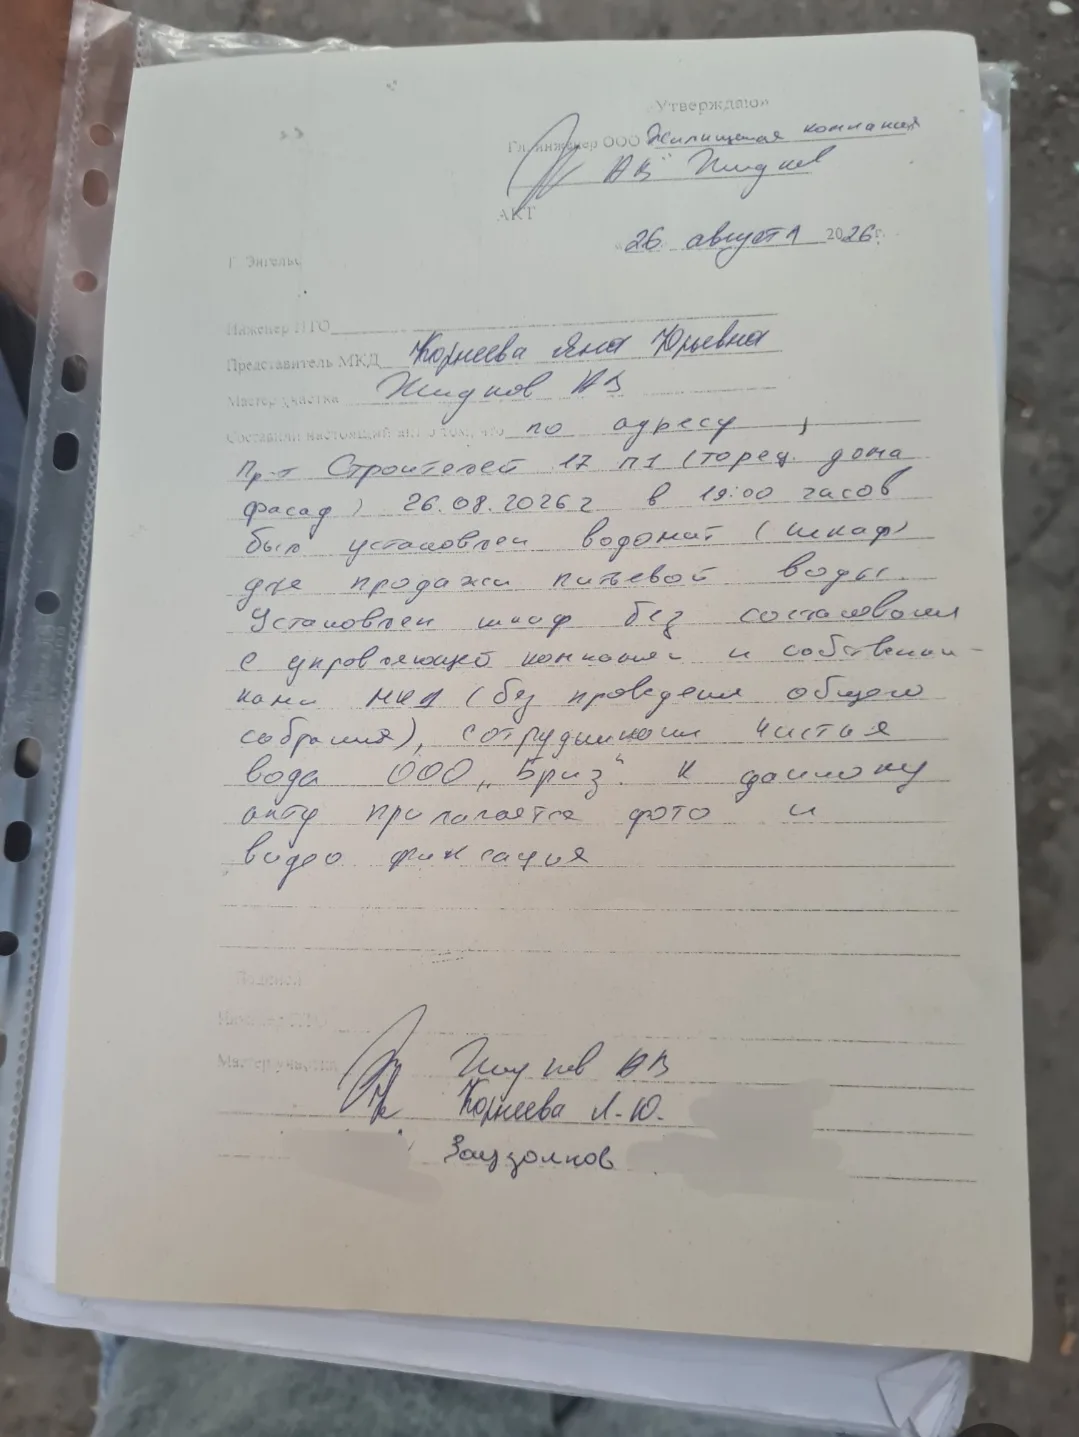 «Утверждаю»
Гл. инженер ООО Жилищная компания
АВ Жидков
АКТ
26 августа 2026 г.
Г. Энгельс
Инженер ПТО
Представитель МКД Корнеева Яна Юрьевна
Мастер участка Жидков АВ
Составили настоящий акт о том, что по адресу
Пр-т Строителей 17 п1 (торец дома
фасад) 26.08.2026 г в 19:00 часов
был установлен водомат (шкаф)
для продажи питьевой воды.
Установлен шкаф без согласования
с управляющей компанией и собственни-
ками МКД (без проведения общего
собрания), сотрудниками Чистая
вода ООО „Бриз". К данному
акту прилагается фото и
видео фиксация
Подписи
Инженер ПТО
Мастер участка Жидков АВ
Корнеева Я.Ю.